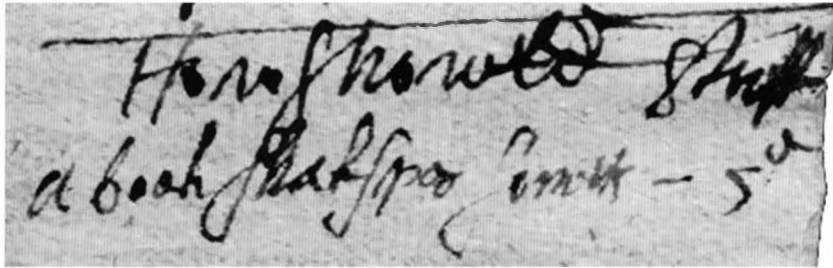 Howshowld stuff
a book Shaksper sonetts – 5d